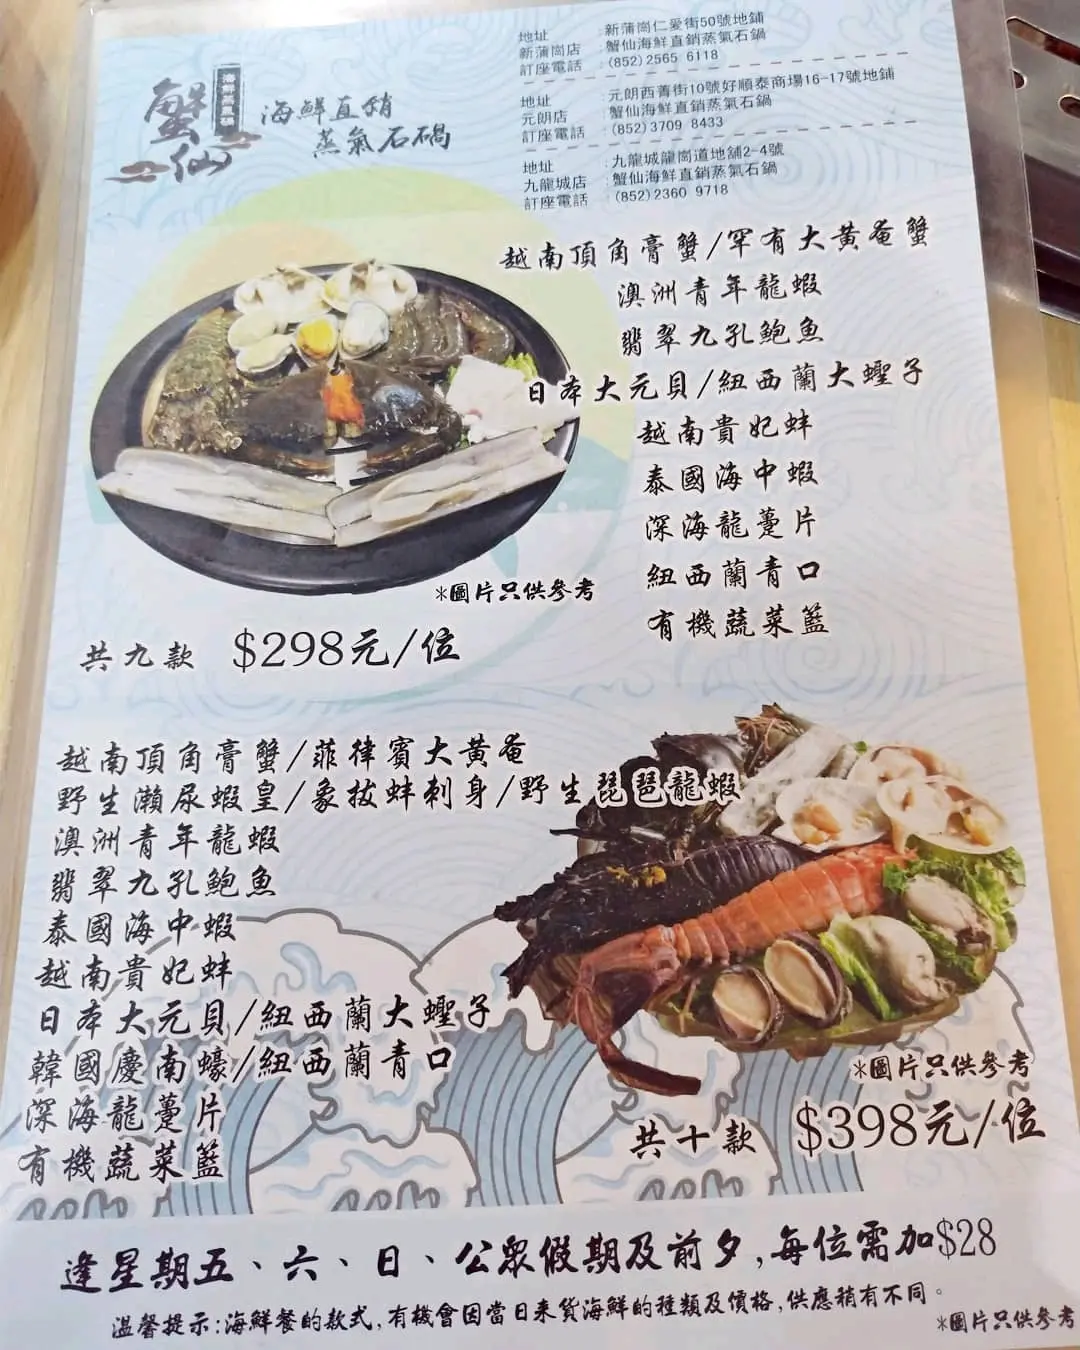 蟹仙
海鮮蒸氣鍋
海鮮直銷
蒸氣石鍋
地址 :新蒲崗仁愛街50號地鋪
新蒲崗店 蟹仙海鮮直銷蒸氣石鍋
訂座電話 :(852)2565 6118
地址 :元朗西菁街10號好順泰商場16-17號地鋪
元朗店 蟹仙海鮮直銷蒸氣石鍋
訂座電話 :(852)3709 8433
地址 :九龍城龍崗道地舖2-4號
九龍城店 :蟹仙海鮮直銷蒸氣石鍋
訂座電話 :(852)2360 9718
越南頂角膏蟹/罕有大黃奄蟹
澳洲青年龍蝦
翡翠九孔鮑魚
日本大元貝/紐西蘭大蟶子
越南貴妃蚌
泰國海中蝦
深海龍躉片
紐西蘭青口
有機蔬菜籃
*圖片只供參考
共九款 $298元/位
越南頂角膏蟹/菲律賓大黃奄
野生瀨尿蝦皇/象拔蚌刺身/野生琵琶龍蝦
澳洲青年龍蝦
翡翠九孔鮑魚
泰國海中蝦
越南貴妃蚌
日本大元貝/紐西蘭大蟶子
韓國慶南蠔/紐西蘭青口
深海龍躉片
有機蔬菜籃
*圖片只供參考
共十款 $398元/位
逢星期五、六、日、公眾假期及前夕,每位需加$28
溫馨提示:海鮮餐的款式,有機會因當日來貨海鮮的種類及價格,供應稍有不同。
*圖片只供參考